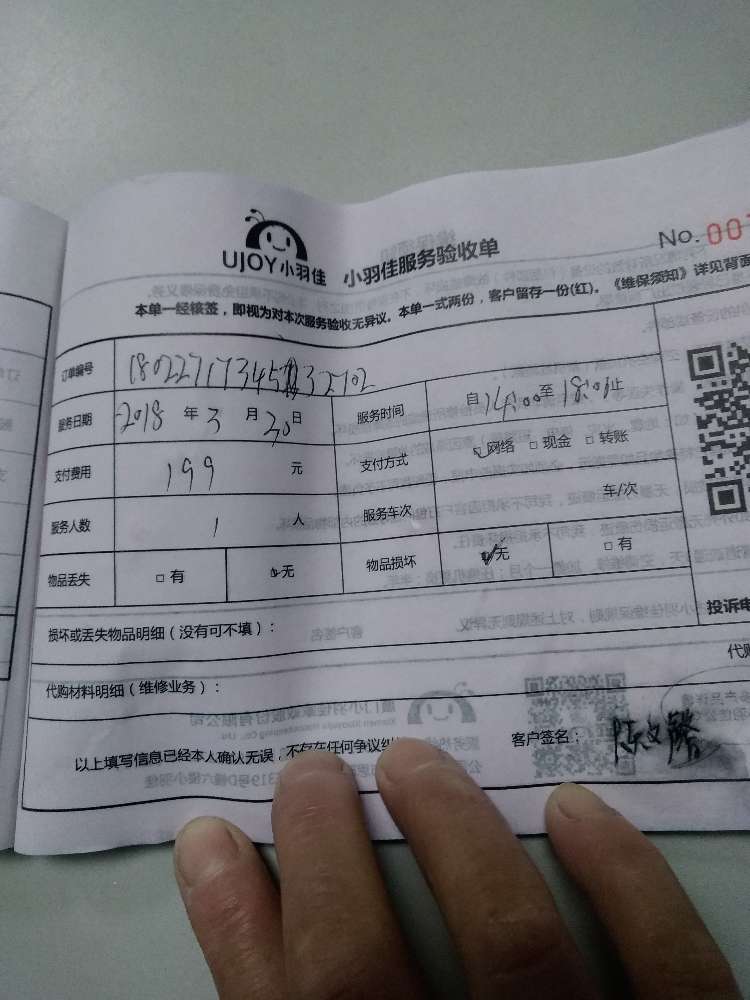 UJOY小羽佳 小羽佳服务验收单
No. 00
本单一经核签，即视为对本次服务验收无异议。本单一式两份，客户留存一份(红)。《维保须知》详见背面
订单编号
服务日期 2018 年 3 月 30 日 服务时间 自 14:00 至 18:00 止
支付费用 199 元 支付方式 网络 □ 现金 □ 转账
服务人数 1 人 服务车次 车/次
物品丢失 □ 有 无 物品损坏 无 □ 有
损坏或丢失物品明细（没有可不填）：
投诉电
代购材料明细（维修业务）：
代购
以上填写信息已经本人确认无误，不存在任何争议纠
客户签名：